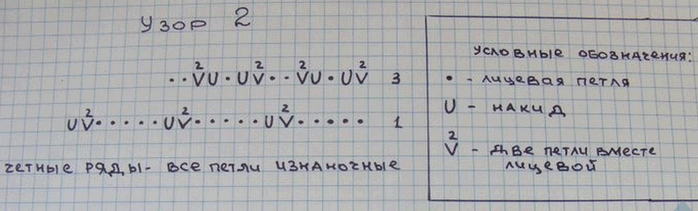 УЗОР 2
••V²U•UV²••V²U•UV² 3
UV²•••••UV²•••••UV²••••• 1
четные ряды- все петли изнаночные
Условные обозначения:
• - лицевая петля
U - накид
V² - две петли вместе
лицевой